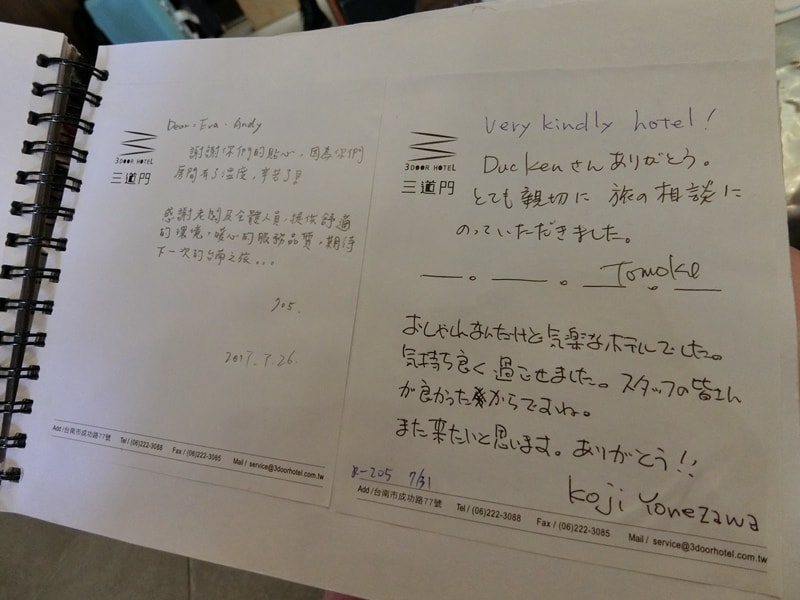 Dear. Eva. Andy
謝謝你們的貼心，因為你們
房間有了溫度，辛苦了!!
感謝老闆及全體人員，提供舒適
的環境，暖心的服務品質，期待
下一次的台南之旅...
205.
2017.7.26.
3DOOR HOTEL
三道門
Add /台南市成功路77號 Tel / (06)222-3088 Fax / (06)222-3085 Mail / service@3doorhotel.com.tw
Very kindly hotel!
3DOOR HOTEL
三道門
Duckenさんありがとう。
とても親切に 旅の相談に
のっていただきました。
Tomoke
おしゃれなんだけど気楽なホテルでした。
気持ち良く過ごせました。スタッフの皆さん
が良かったからですね。
また来たいと思います。ありがとう!!
R-205 7/31
Koji Yonezawa
Add /台南市成功路77號 Tel / (06)222-3088 Fax / (06)222-3085 Mail / service@3doorhotel.com.tw